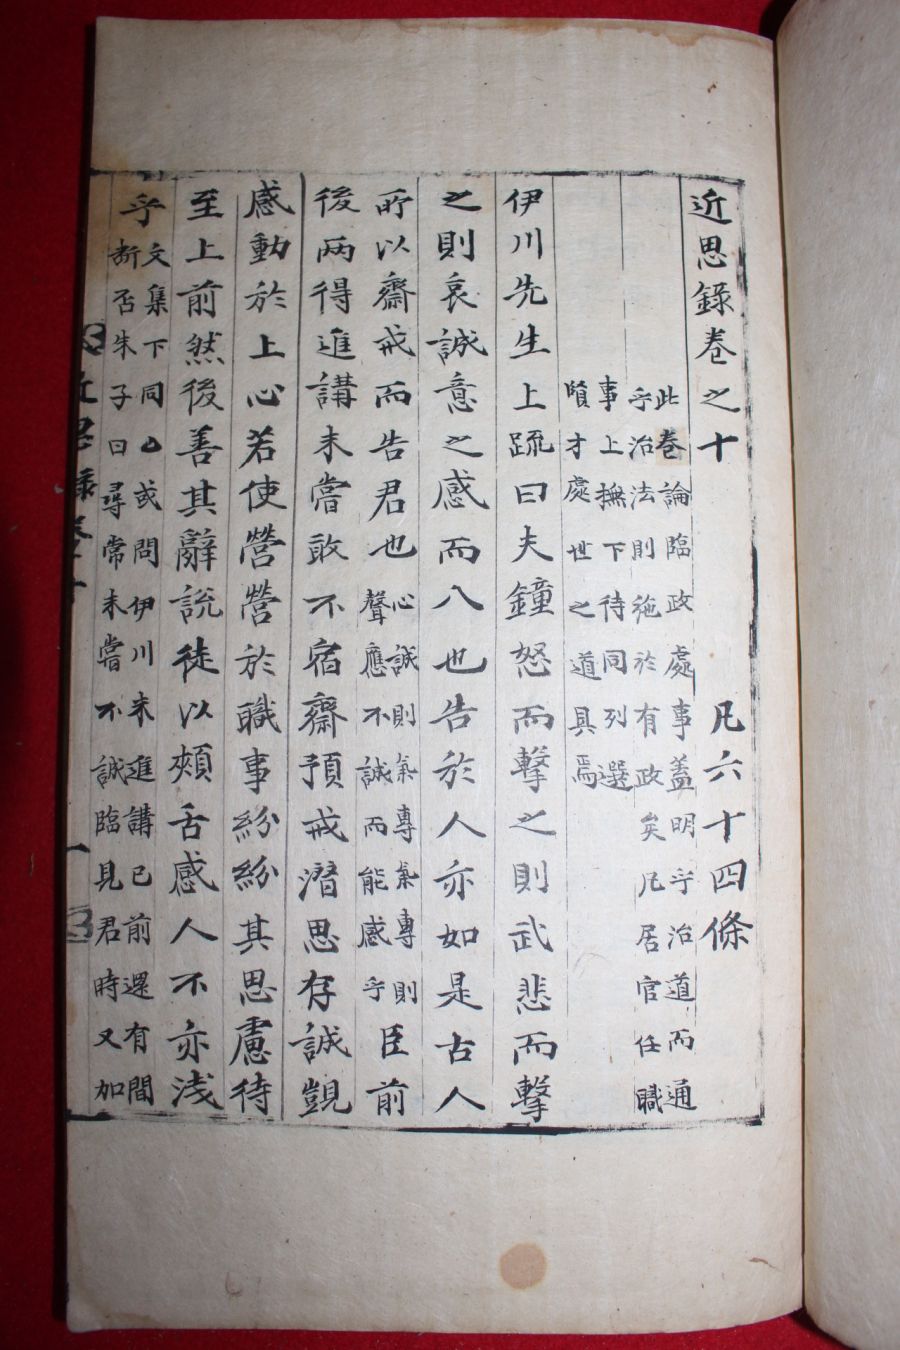 近思錄卷之十 凡六十四條
此卷論臨政處事蓋明乎治道而通
乎治法則施於有政矣凡居官任職
事上撫下待同列選
賢才處世之道具焉
伊川先生上疏曰夫鐘怒而擊之則武悲而擊
之則哀誠意之感而入也告於人亦如是古人
所以齋戒而告君也
心誠則氣專氣專則
聲應不誠而能感乎
臣前
後兩得進講未嘗敢不宿齋預戒潛思存誠覬
感動於上心若使營營於職事紛紛其思慮待
至上前然後善其辭說徒以頰舌感人不亦淺
乎
文集下同 或問伊川未進講已前還有間
斷否朱子曰尋常未嘗不誠臨見君時又加
近思錄卷十 一